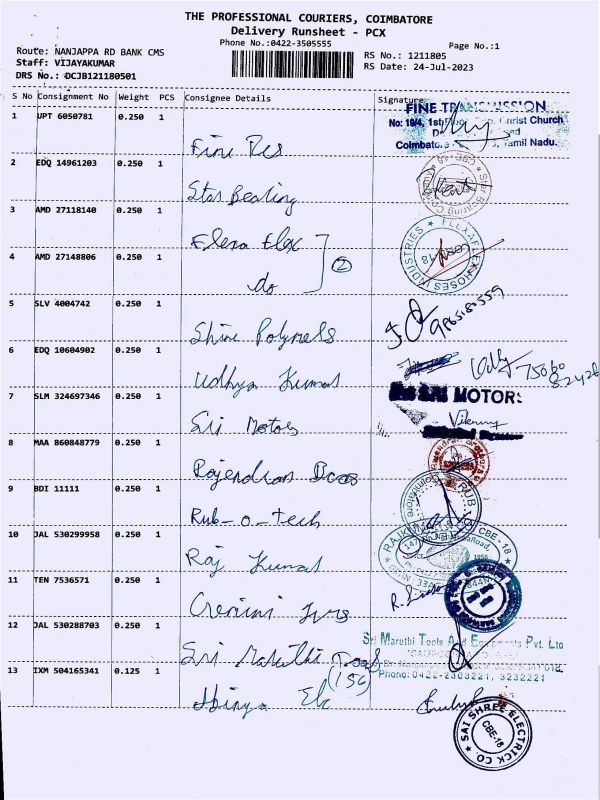 THE PROFESSIONAL COURIERS, COIMBATORE
Delivery Runsheet - PCX
Phone No.:0422-3505555
Page No.:1
Route: NANJAPPA RD BANK CMS
RS No.: 1211805
Staff: VIJAYAKUMAR
RS Date: 24-Jul-2023
DRS No.: DCJB121180501
S No Consignment No Weight PCS Consignee Details Signature
1 UPT 6050781 0.250 1
FINE TRANSMISSION
No: 19/4, 1st Christ Church
Coimbatore Tamil Nadu.
Fine
2 EDQ 14961203 0.250 1
Star Bearing
Star Bearing
3 AMD 27118140 0.250 1
FLEXAFLEX HOSES INDUSTRIES
Flexa Flex
4 AMD 27148806 0.250 1
do
2
5 SLV 4004742 0.250 1
Shine Polymers
6 EDQ 10604902 0.250 1
Udhya Kumar
7 SLM 324697346 0.250 1
SAI MOTORS
Sri Motors
8 MAA 860848779 0.250 1
Rajendran Bros
9 BDI 11111 0.250 1
Rub-o-tech
10 JAL 530299958 0.250 1
CBE - 18
Raj Kumar
11 TEN 7536571 0.250 1
12 JAL 530288703 0.250 1
Sri Maruthi Tools Pvt. Ltd
Sri Maruthi Tools
(156)
Phone: 0422-2303221, 3232221
13 IXM 504165341 0.125 1
SAI SHREE ELECTRICK CO.
CBE-18